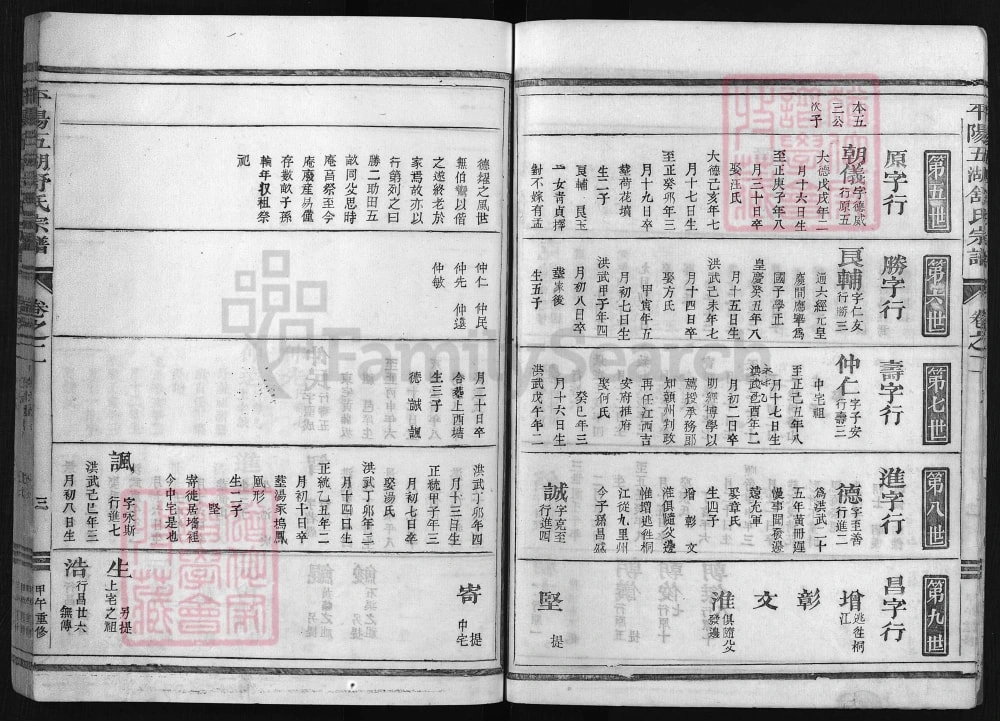 平陽五湖舒氏宗譜
卷之一
第五世
原字行
本五
三公
次子
朝儀
字德威
行原五
大德戊戌年二
月十六日生
至正庚子年八
月三十日卒
娶汪氏
大德己亥年七
月十七日生
至正癸卯年三
月十九日卒
葬荷花墳
生二子
良輔 良玉
一女青貞擇
對不嫁有孟
德耀之風世
無伯鸞以偕
之遂終老於
家焉故亦以
行第列之曰
勝二助田五
畝同父思時
庵
庵廢産易僅
存數畝子孫
輪年収租祭
祀
第六世
勝字行
良輔
字仁友
行勝三
通六經元皇
慶間應舉爲
國子學正
皇慶癸丑年八
月十五日生
娶方氏
月十四日生
洪武己未年七
月甲寅年五
月初七日生
洪武甲子年四
月初八日卒
葬家後
生五子
仲仁 仲民
仲先 仲遠
仲敏
第七世
壽字行
仲仁
字子安
行壽三
中宅祖
至正己丑年八
月十七日生
洪武己酉年二
月初二日卒
明經博學以
薦授承務郎
知贛州判政
再任江西吉
安府推府
娶何氏
癸巳年三
月十六日生
洪武戊午年二
月二十日卒
合葬上西塘
生三子
德 誠 諷
第八世
進字行
德
字至善
行進二
爲洪武二十
五年黃冊遲
慢事問發邊
遠充軍
娶章氏
生四子
增 彰 文
淮俱隨父邊
惟增逃徃桐
江從九里州
今子孫昌盛
誠
字克至
行進四
洪武丁卯年四
月十三日生
正統甲子年三
月初七日卒
娶湯氏
洪武丁卯年二
月十四日生
正統乙丑年二
月初十日卒
葬湯家塢鳳
凰形
生二子
堅 寄
寄徙居墻裡
今中宅是也
諷
字咏斯
行進七
洪武己巳年三
月初八日生
第九世
昌字行
增
逃徃桐
江
彰
文
淮
俱隨父
發邊
堅
提
寄
提
中宅
生
另提
上宅之祖
浩
行昌廿六
無傳
平陽五湖舒氏宗譜
卷之一
三
甲午重修